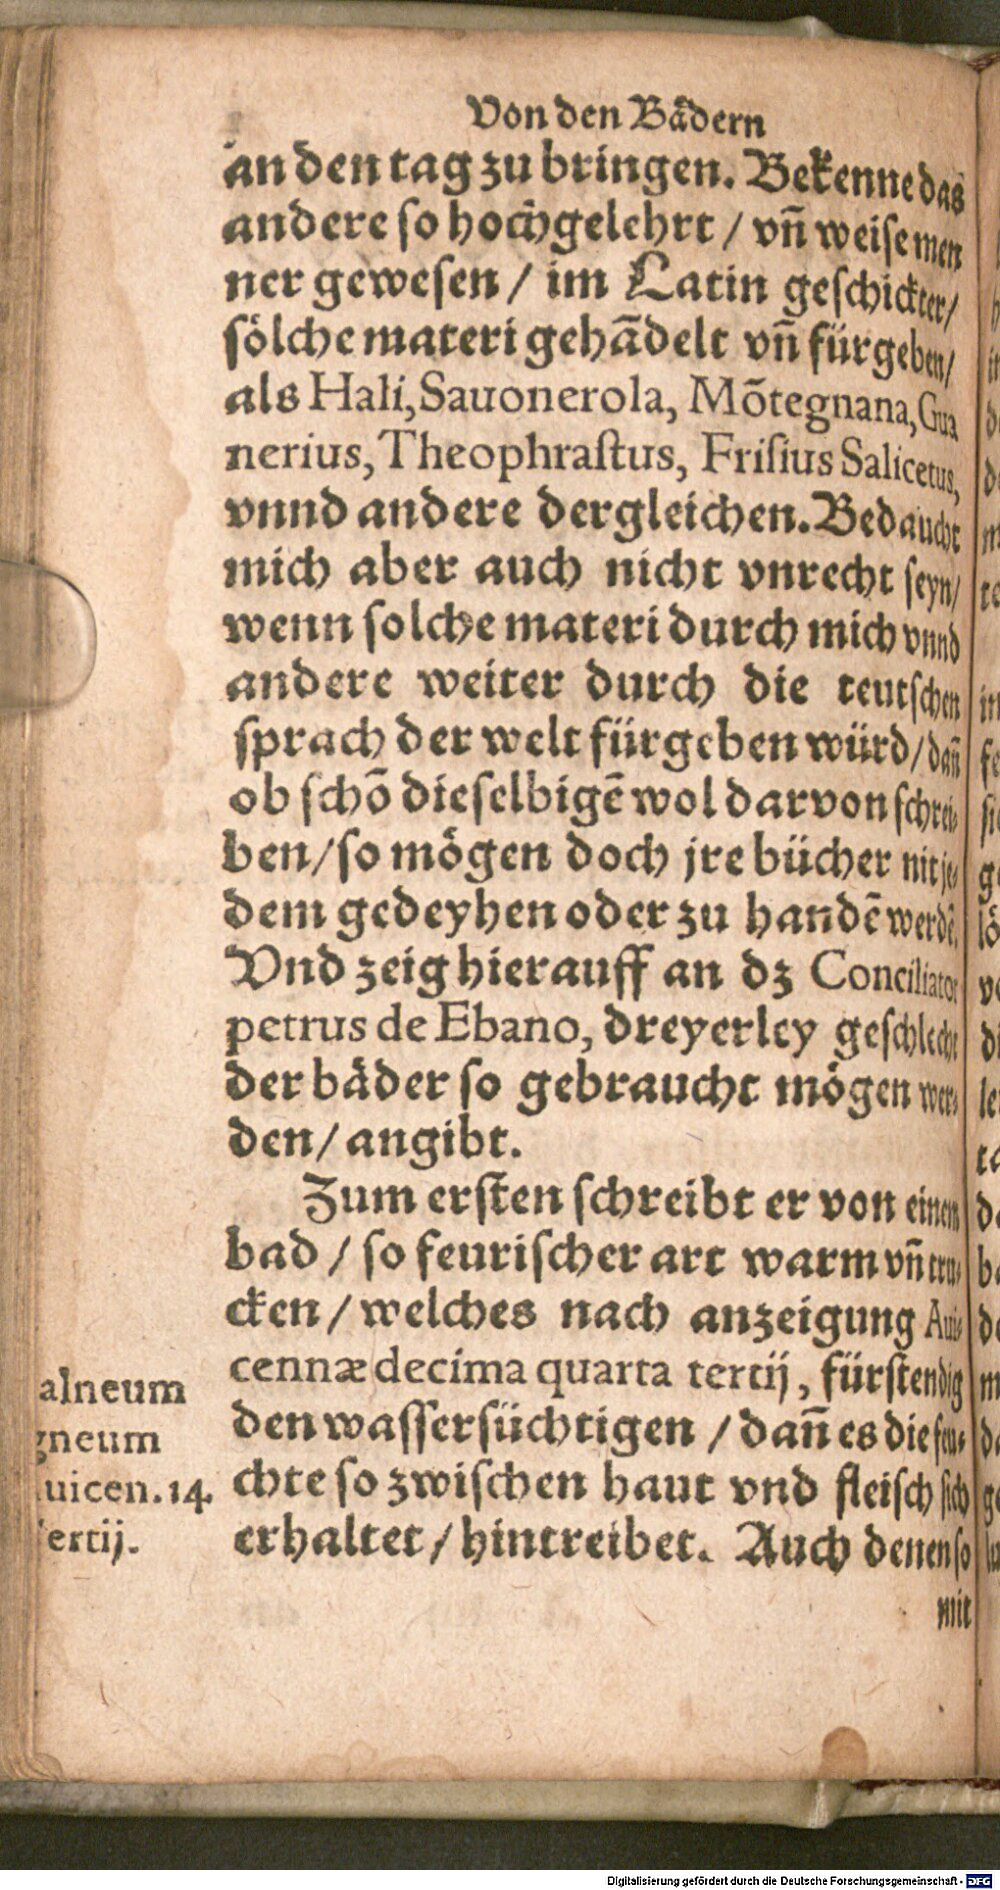 Von den Bädern
an den tag zu bringen. Bekenne das
andere so hochgelehrt / vñ weise men
ner gewesen / im Latin geschickter/
sölche materi gehãdelt vñ fürgeben/
als Hali, Sauonerola, Mõtegnana, Gua
nerius, Theophrastus, Frisius Salicetus,
vnnd andere dergleichen. Bedaucht
mich aber auch nicht vnrecht seyn/
wenn solche materi durch mich vnnd
andere weiter durch die teutschen
sprach der welt fürgeben würd/ dañ
ob schõ dieselbigẽ wol darvon schrei-
ben/ so mögen doch jre bücher nit je-
dem gedeyhen oder zu handẽ werdẽ.
Vnd zeig hierauff an dz Conciliator
petrus de Ebano, dreyerley geschlecht
der bäder so gebraucht mögen wer-
den/ angibt.
Zum ersten schreibt er von einem
bad / so feurischer art warm vñ tru-
cken / welches nach anzeigung Aui-
cennæ decima quarta tertij, fürstendig
den wassersüchtigen / dañ es die feu-
chte so zwischen haut vnd fleisch sich
erhaltet / hintreibet. Auch denen so
mit
alneum
gneum
uicen. 14.
ertij.
Digitalisierung gefördert durch die Deutsche Forschungsgemeinschaft - DFG